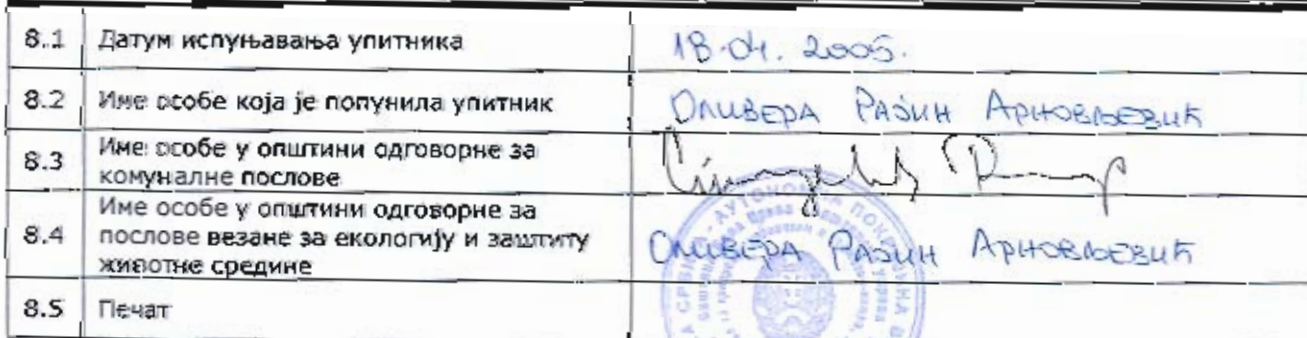 8.1 Датум испуњавања упитника 18.04. 2005.
8.2 Име особе која је попунила упитник ОЛИВЕРА РАЈИН АРНОВЉЕВИЋ
8.3 Име особе у општини одговорне за
комуналне послове
8.4 Име особе у општини одговорне за
послове везане за екологију и заштиту
животне средине ОЛИВЕРА РАЈИН АРНОВЉЕВИЋ
8.5 Печат
АУТОНОМНА ПОКРАЈИНА В